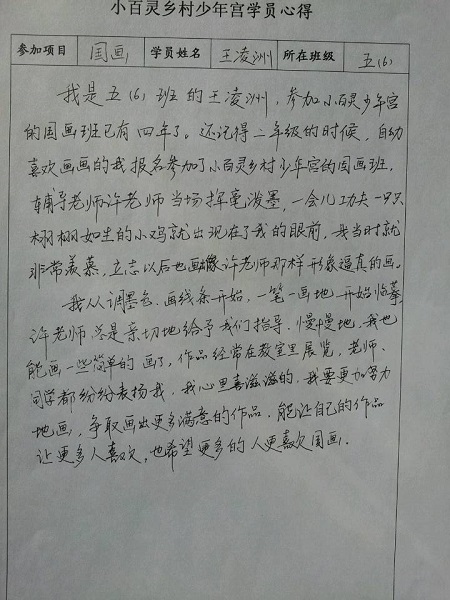 小百灵乡村少年宫学员心得
参加项目 国画 学员姓名 王凌洲 所在班级 五(6)
我是五(6)班的王凌洲，参加小百灵少年宫
的国画班已有四年了。还记得二年级的时候，自幼
喜欢画画的我报名参加了小百灵乡村少年宫的国画班，
辅导老师许老师当场挥毫泼墨，一会儿功夫一只只
栩栩如生的小鸡就出现在了我的眼前，我当时就
非常羡慕，立志以后也画像许老师那样形像逼真的画。
我从调墨色、画线条开始，一笔一画地开始临摹，
许老师总是亲切地给予我们指导，慢慢地，我也
能画一些简单的画了，作品经常在教室里展览，老师、
同学都纷纷表扬我，我心里喜滋滋的，我要更加努力
地画，争取画出更多满意的作品，能让自己的作品
让更多人喜欢，也希望更多的人更喜欢国画。